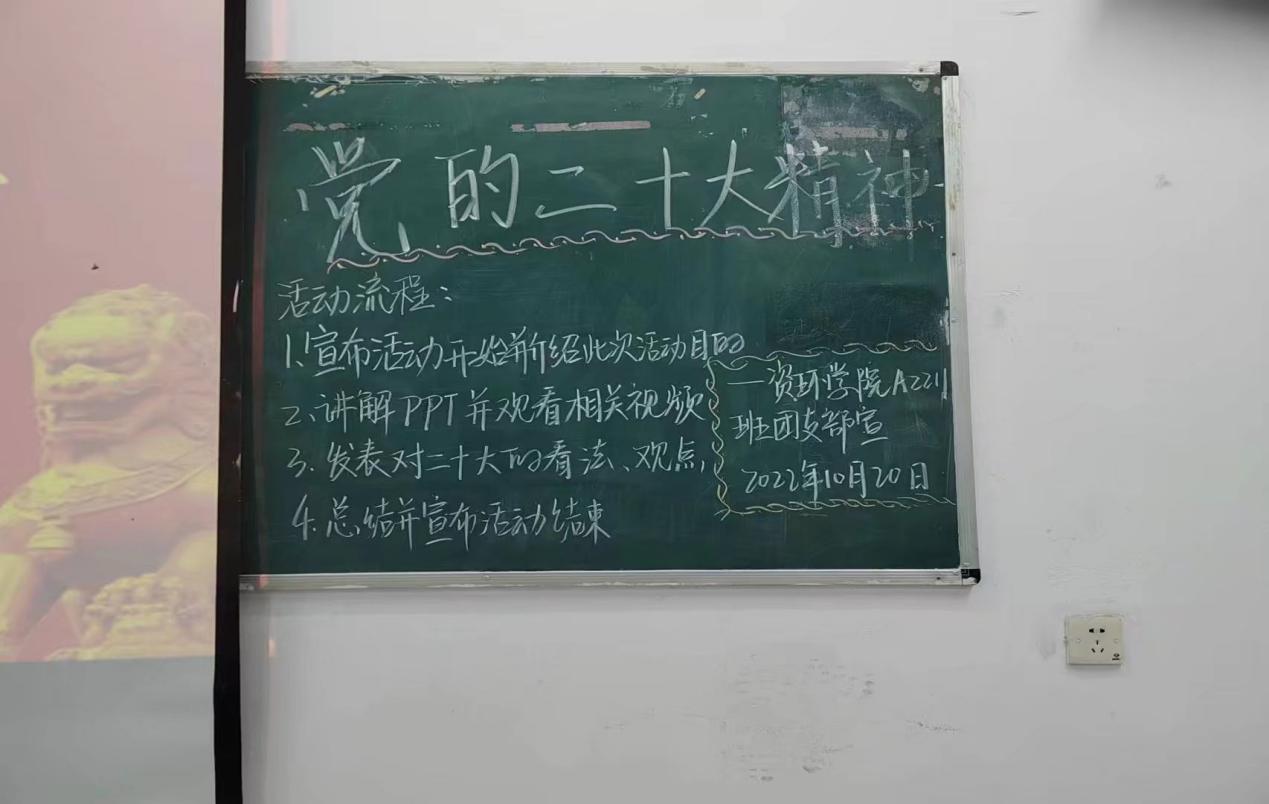 党的二十大精神
活动流程：
1.宣布活动开始并介绍此次活动目的
2.讲解PPT并观看相关视频
3.发表对二十大的看法、观点
4.总结并宣布活动结束
—资环学院A2211
班团支部宣
2022年10月20日